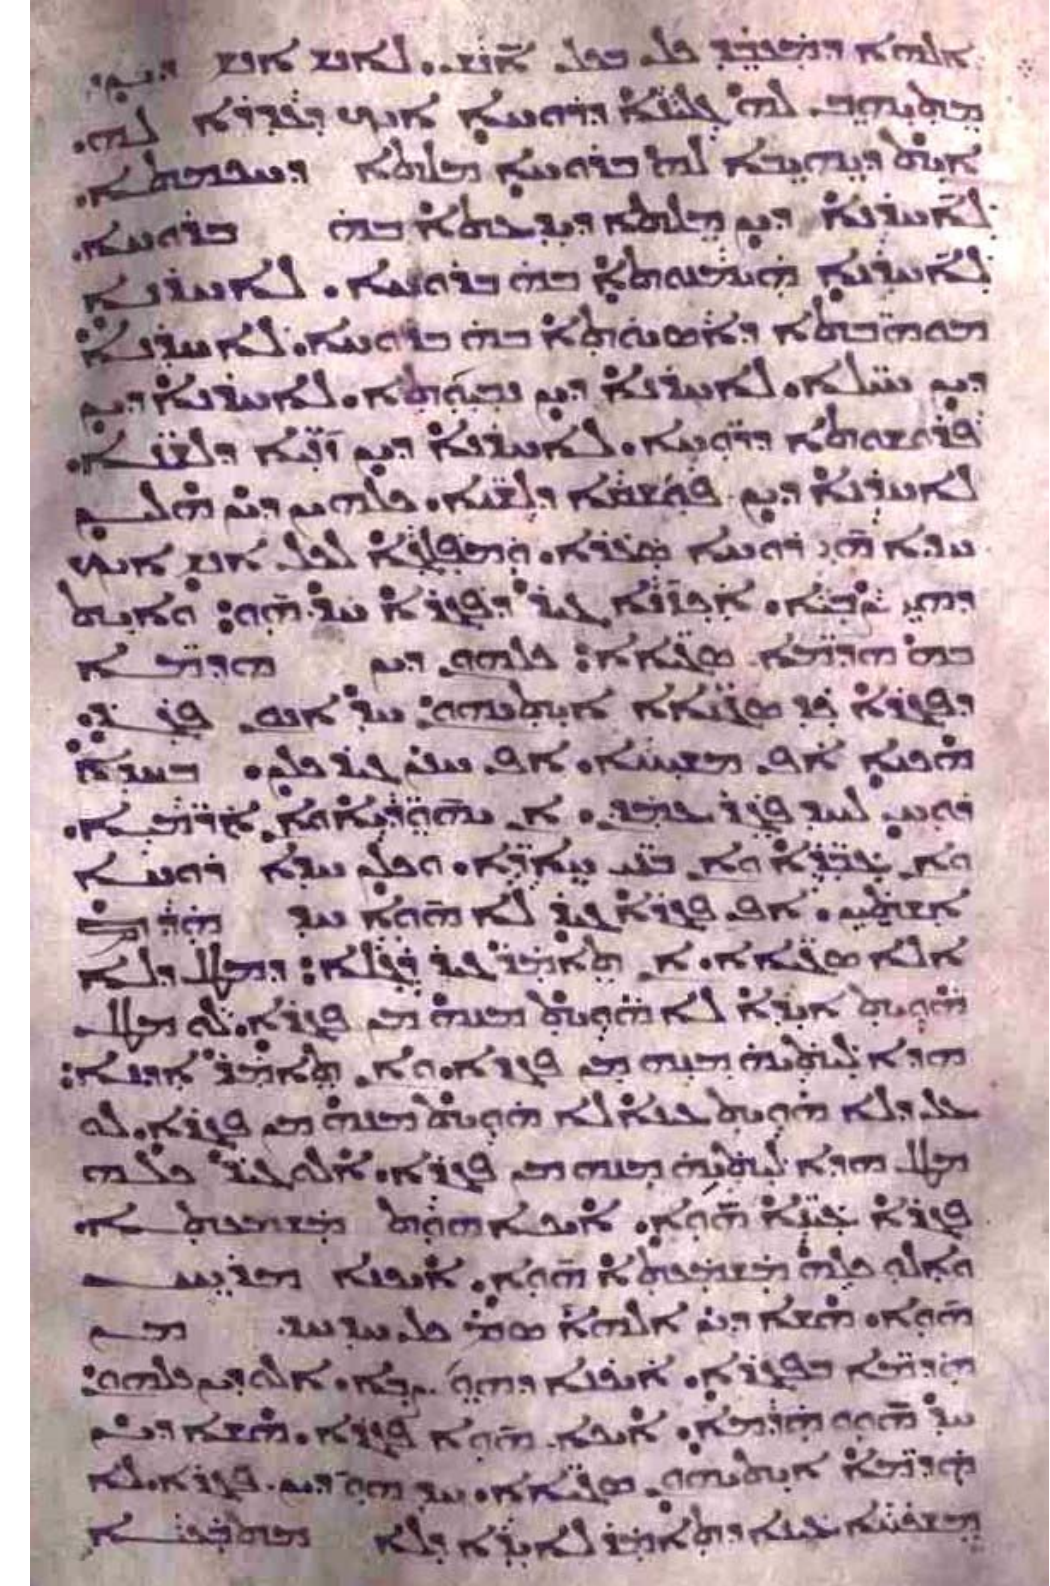 ܐܠܗܐ ܕܡܥܒܕ ܟܠ ܒܟܠ ܐܢܫ. ܠܐܢܫ ܐܢܫ ܕܝܢ
ܡܬܝܗܒ ܠܗ ܓܠܝܢܐ ܕܪܘܚܐ ܐܝܟ ܕܥܕܪܐ ܠܗ.
ܐܝܬ ܕܝܗܝܒܐ ܠܗ ܒܪܘܚܐ ܡܠܬܐ ܕܚܟܡܬܐ.
ܠܐܚܪܢܐ ܕܝܢ ܡܠܬܐ ܕܝܕܥܬܐ ܒܗ ܒܪܘܚܐ.
ܠܐܚܪܢܐ ܗܝܡܢܘܬܐ ܒܗ ܒܪܘܚܐ. ܠܐܚܪܢܐ
ܡܘܗܒܬܐ ܕܐܣܝܘܬܐ ܒܗ ܒܪܘܚܐ. ܠܐܚܪܢܐ
ܕܝܢ ܚܝܠܐ. ܠܐܚܪܢܐ ܕܝܢ ܢܒܝܘܬܐ. ܠܐܚܪܢܐ ܕܝܢ
ܦܪܘܫܘܬܐ ܕܪܘܚܐ. ܠܐܚܪܢܐ ܕܝܢ ܙܢܝܐ ܕܠܫܢܐ.
ܠܐܚܪܢܐ ܕܝܢ ܦܘܫܩܐ ܕܠܫܢܐ. ܟܠܗܝܢ ܕܝܢ ܗܠܝܢ
ܚܕܐ ܗܝ ܪܘܚܐ ܣܥܪܐ. ܘܡܦܠܓܐ ܠܟܠ ܐܢܫ ܐܝܟ
ܕܗܝ ܨܒܝܐ. ܐܟܙܢܐ ܓܝܪ ܕܦܓܪܐ ܚܕ ܗܘ: ܘܐܝܬ
ܒܗ ܗܕܡܐ ܣܓܝܐܐ: ܟܠܗܘܢ ܕܝܢ ܗܕܡܐ
ܕܦܓܪܐ ܟܕ ܣܓܝܐܐ ܐܝܬܝܗܘܢ: ܚܕ ܐܢܘܢ ܦܓܪ:
ܗܟܢܐ ܐܦ ܡܫܝܚܐ. ܐܦ ܚܢܢ ܓܝܪ ܟܠܢ. ܒܚܕܐ
ܪܘܚ ܠܚܕ ܦܓܪ ܥܡܕܢ. ܐܢ ܝܗܘܕܝܐ ܘܐܢ ܐܪܡܝܐ.
ܘܐܢ ܥܒܕܐ ܘܐܢ ܒܢܝ ܚܐܪܐ. ܘܟܠܢ ܚܕܐ ܪܘܚܐ
ܐܫܬܝܢ. ܐܦ ܦܓܪܐ ܓܝܪ ܠܐ ܗܘܐ ܚܕ ܗܕܡ
ܐܠܐ ܣܓܝܐܐ. ܐܢ ܬܐܡܪ ܓܝܪ ܪܓܠܐ: ܕܡܛܠ ܕܠܐ
ܗܘܝܬ ܐܝܕܐ ܠܐ ܗܘܝܬ ܡܢܗ ܡܢ ܦܓܪܐ. ܠܘ ܡܛܠ
ܗܕܐ ܠܝܬܝܗ ܡܢܗ ܡܢ ܦܓܪܐ. ܘܐܢ ܬܐܡܪ ܐܕܢܐ:
ܥܠ ܕܠܐ ܗܘܝܬ ܥܝܢܐ ܠܐ ܗܘܝܬ ܡܢܗ ܡܢ ܦܓܪܐ. ܠܘ
ܡܛܠ ܗܕܐ ܠܝܬܝܗ ܡܢܗ ܡܢ ܦܓܪܐ. ܐܠܘ ܓܝܪ ܟܠܗ
ܦܓܪܐ ܥܝܢܐ ܗܘܐ. ܐܝܟܐ ܗܘܬ ܡܫܡܥܬܐ.
ܘܐܠܘ ܟܠܗ ܡܫܡܥܬܐ ܗܘܐ. ܐܝܟܢܐ ܡܪܝܚ
ܗܘܐ. ܗܫܐ ܕܝܢ ܐܠܗܐ ܣܡ ܟܠ ܚܕ ܚܕ ܡܢ
ܗܕܡܐ ܒܦܓܪܐ. ܐܝܟܢܐ ܕܗܘ ܨܒܐ. ܐܠܘ ܕܝܢ ܟܠܗܘܢ
ܚܕ ܗܘܘ ܗܕܡܐ. ܐܝܟܐ ܗܘܐ ܦܓܪܐ. ܗܫܐ ܕܝܢ
ܗܕܡܐ ܐܝܬܝܗܘܢ ܣܓܝܐܐ. ܚܕ ܗܘ ܕܝܢ ܦܓܪܐ. ܠܐ
ܡܫܟܚܐ ܥܝܢܐ ܕܬܐܡܪ ܠܐܝܕܐ ܕܠܐ ܡܬܒܥܝܐ